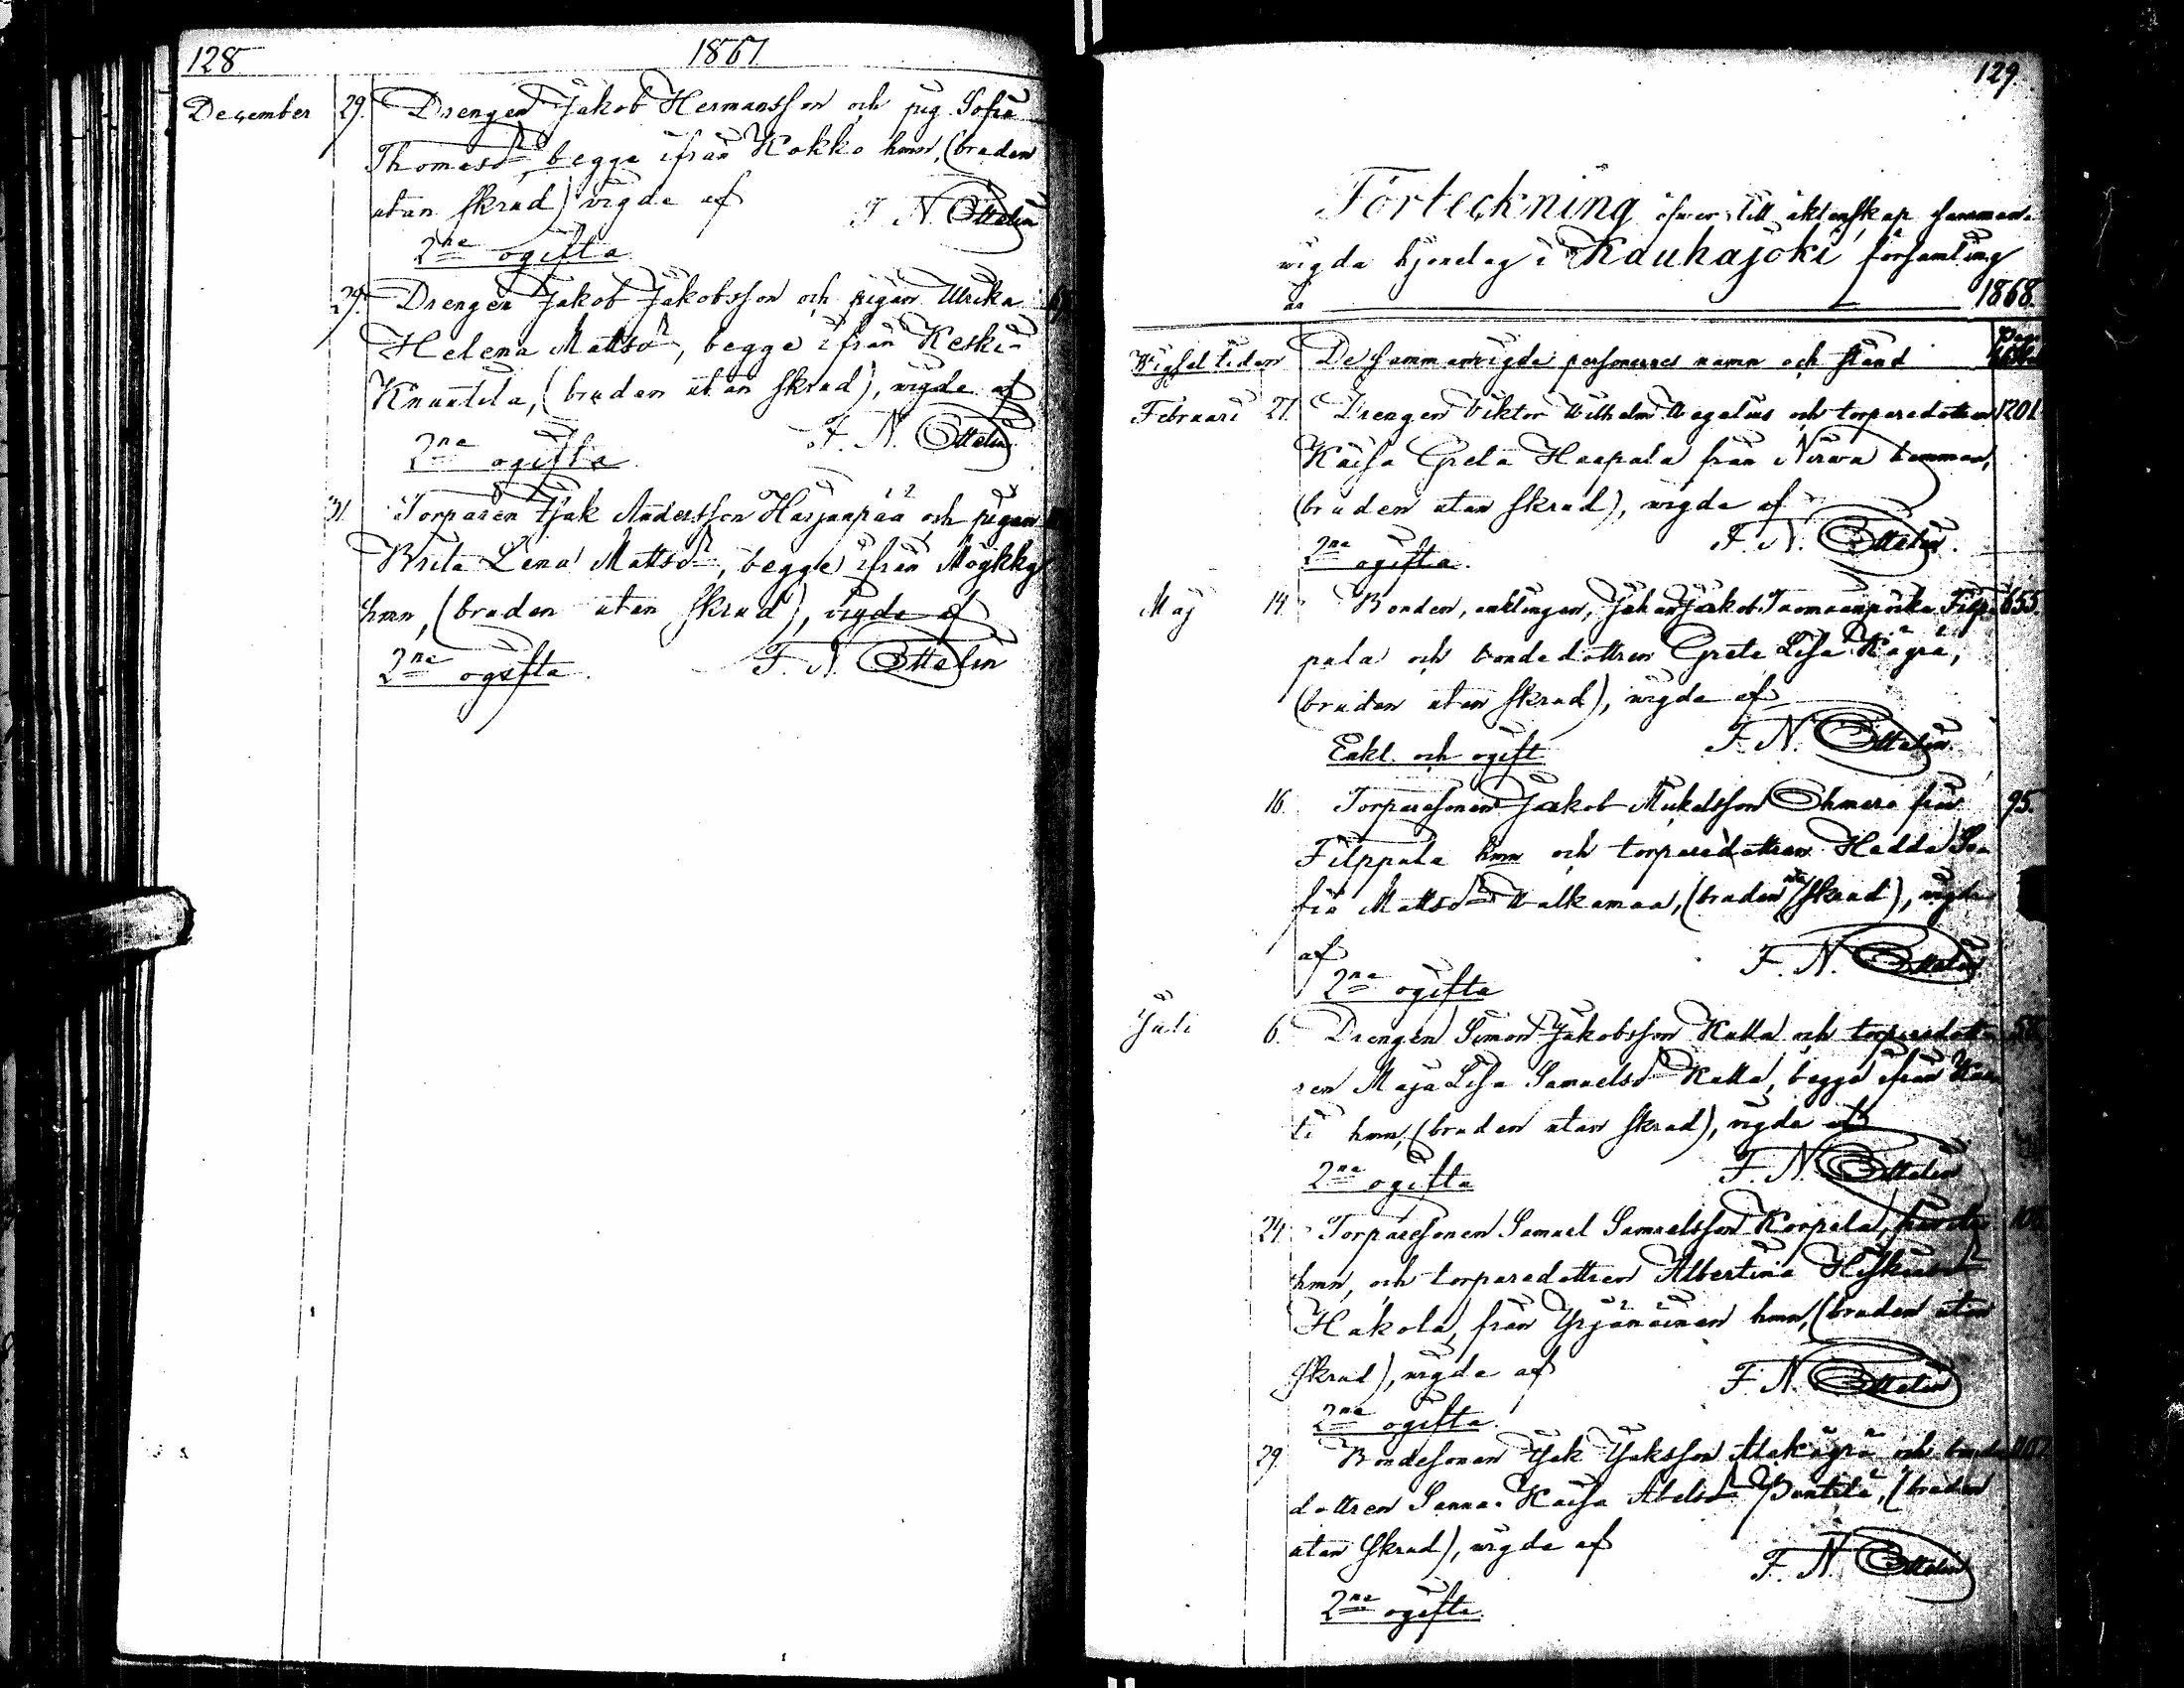 128 1867
December 29. Drengen Jakob Hermansson och pig Sofia
Thomasdr, begge ifrån Kokko hmn, (bruden
utan skrud) vigde af F. N. Ottelin
2ne ogifta
29. Drengen Jakob Jakobsson och pigan Ulrika
Helena Mattsdr, begge ifrån Keski-
Knuutila, (bruden utan skrud), vigde af
2ne ogifta F. N. Ottelin
31. Torparen Isak Andersson Harjanpää och pigan
Brita Lena Mattsdr, begge ifrån
hmn, (bruden utan skrud), vigde af
2ne ogifta F. N. Ottelin
129.
Förteckning öfwer till äktenskap samman-
wigda hjonelag i Kauhajoki församling
år 1868.
Wigseltiden De sammanwigda personernes namn och stånd
Februari 27. Drengen Viktor Wilhelm Wegelius och torparedottren 1201
Kaisa Greta Haapala från Nirwa hemman,
(bruden utan skrud), wigde af
2ne ogifta. F. N. Ottelin.
Maj 14. Bonden, enklingen, Johan Jakob
pala och bondedottren Greta Lisa Kägrä,
(bruden utan skrud), wigde af
Enkl. och ogift F. N. Ottelin.
16. Torparesonen Jakob Mickelsson från 95.
Filppula hmn och torparedottren Hedda So-
fia Mattsdr Walkamaa, (bruden utan skrud), wigde
af F. N. Ottelin
2ne ogifta
Juli 6. Drengen Simon Jakobsson Kalla och torparedott-
ren Maja Lisa Samuelsdr Kalla, begge ifrån
hmn, (bruden utan skrud), vigde af
2ne ogifta F. N. Ottelin
24. Torparesonen Samuel Samuelsson Korpela,
hmn, och torparedottren Albertina
Hakola, från Yrjänäinen hmn, (bruden utan
skrud), wigde af F. N. Ottelin
2ne ogifta.
29. Bondesonen Isak Isaksson Alakägrä och bonde
dottren Sanna Kaisa Abelsdr Panttila, (bruden
utan skrud), wigde af F. N. Ottelin
2ne ogifta.